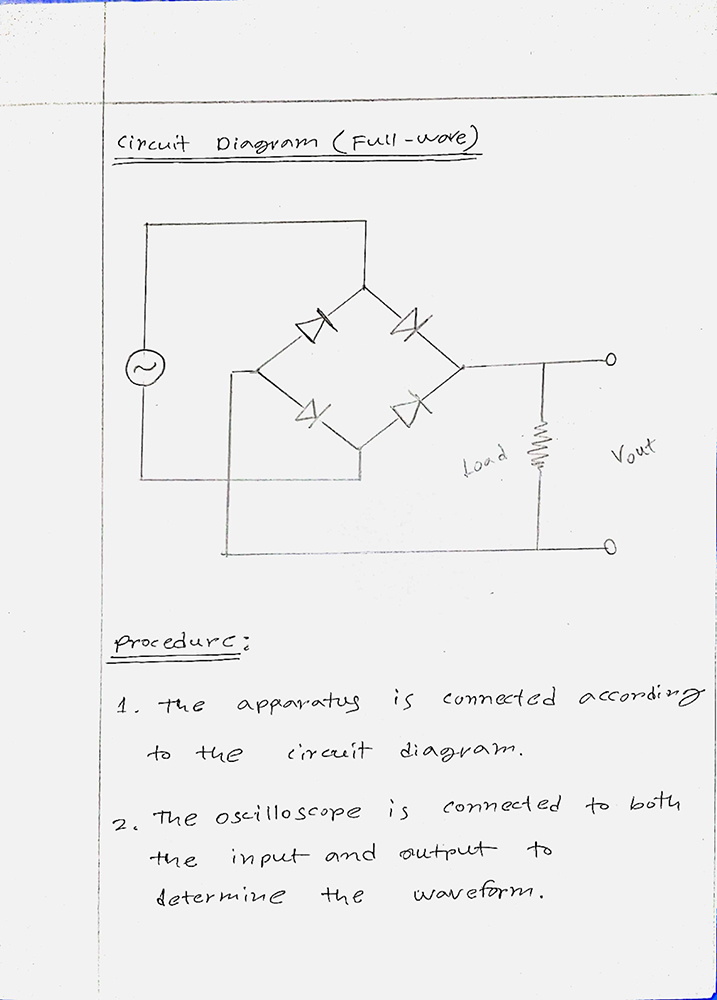 Circuit Diagram (Full-wave)
Load
Vout
Procedure:
1. The apparatus is connected according
to the circuit diagram.
2. The oscilloscope is connected to both
the input and output to
determine the waveform.